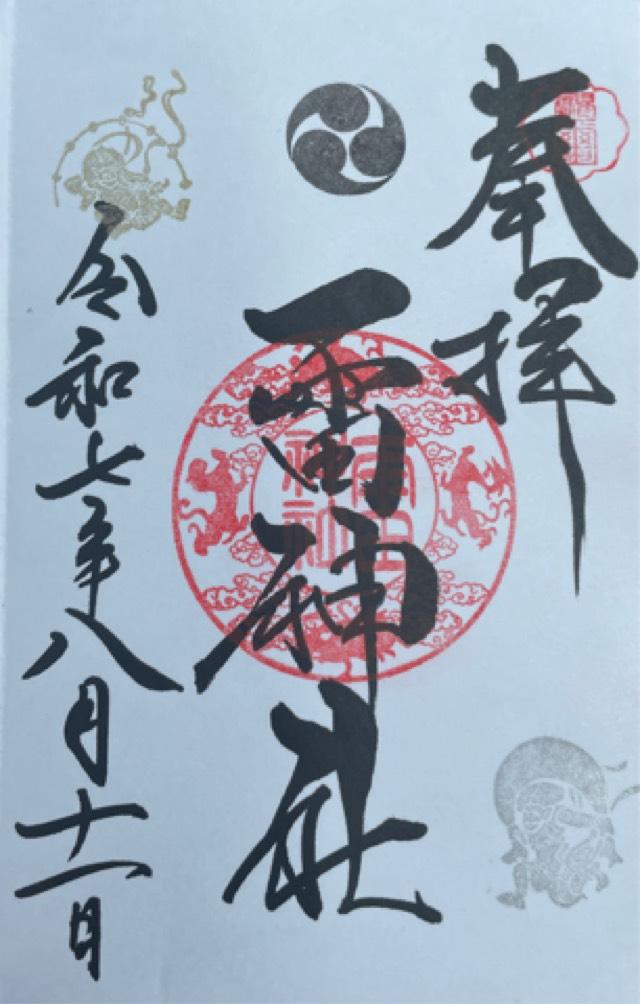 奉拝
雷神社
令和七年八月十一日